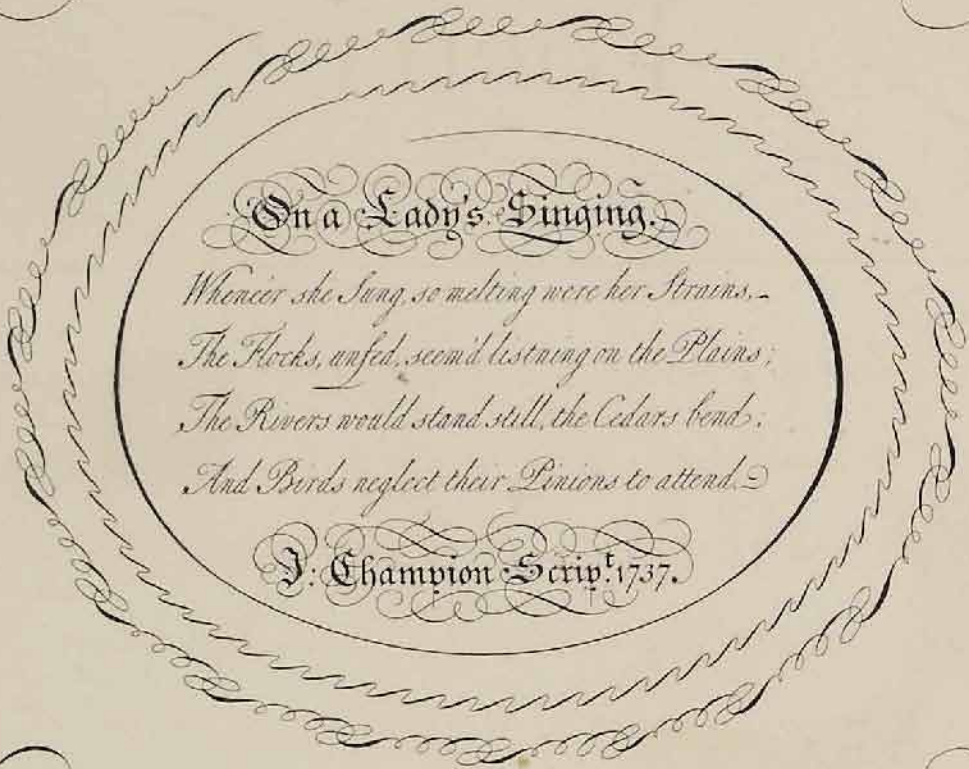 On a Lady's Singing.
Whene'er she Sung, so melting were her Strains,
The Flocks, unfed, seem'd listning on the Plains;
The Rivers would stand still, the Cedars bend;
And Birds neglect their Pinions to attend.
J: Champion Scrip.t 1737.